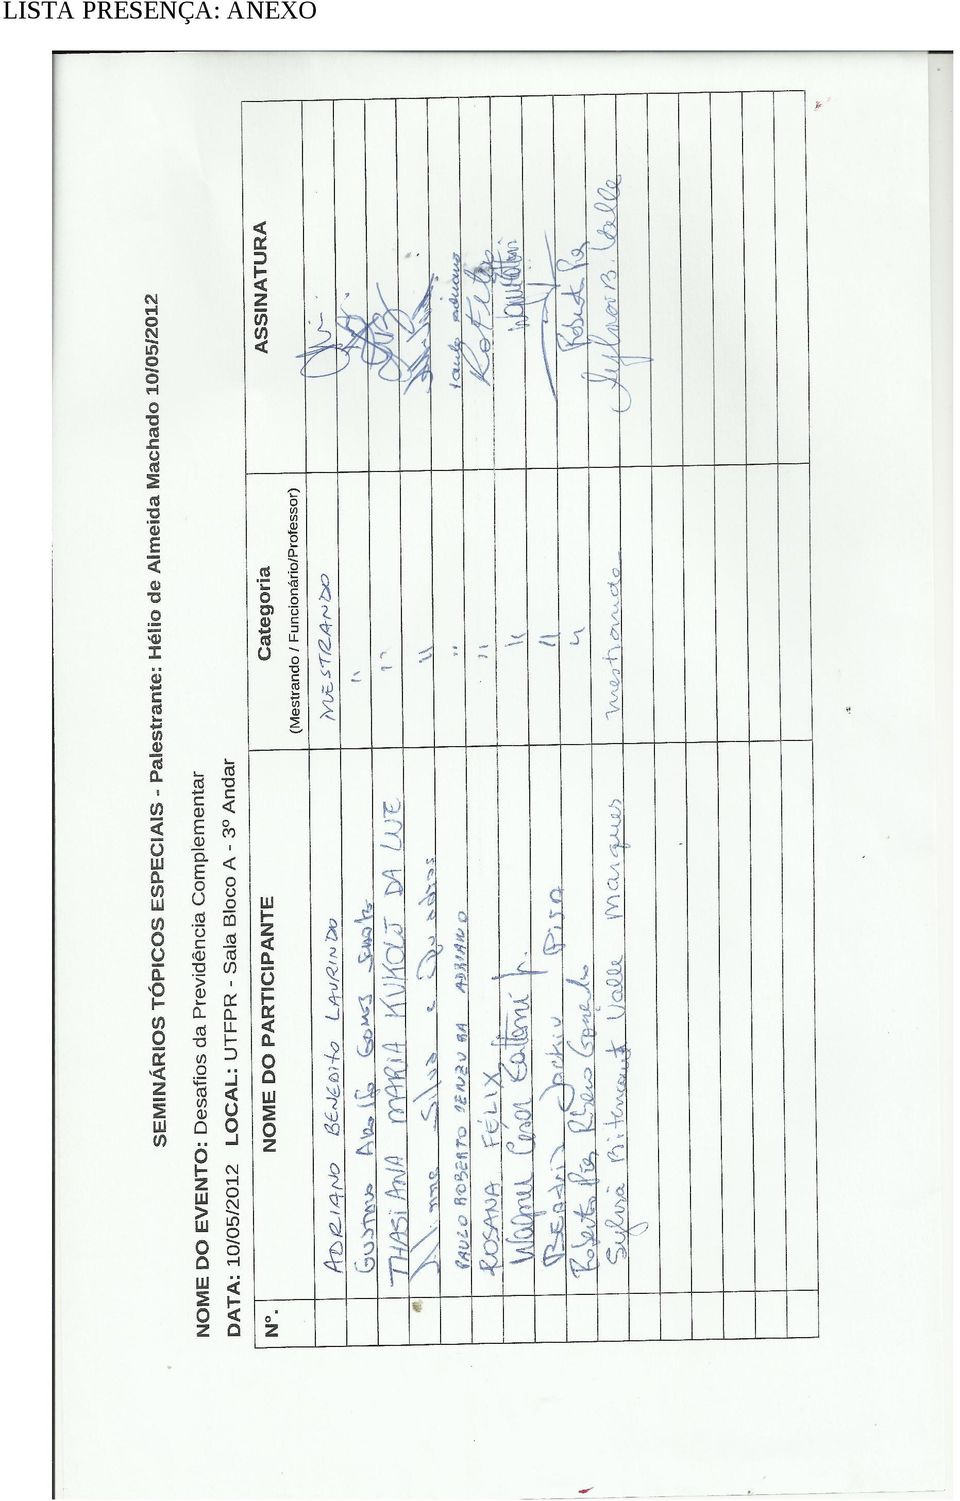 LISTA PRESENÇA: ANEXO
SEMINÁRIOS TÓPICOS ESPECIAIS - Palestrante: Hélio de Almeida Machado 10/05/2012
NOME DO EVENTO: Desafios da Previdência Complementar
DATA: 10/05/2012 LOCAL: UTFPR - Sala Bloco A - 3º Andar
Nº. NOME DO PARTICIPANTE Categoria ASSINATURA
(Mestrando / Funcionário/Professor)
ADRIANO BENEDITO LAURINDO MESTRANDO
GUSTAVO GOMES "
THASIANA MARIA KUKOLJ DA LUZ "
Silva e Quadros "
PAULO ROBERTO ADRIANO " Paulo Adriano
ROSANA FÉLIX "
Wagner Cesar Jr. "
BEATRIZ Jackiw PISA "
Roberto Pis Ribeiro "
Sylvia Bitencourt Valle Marques mestranda Sylvia B. Valle